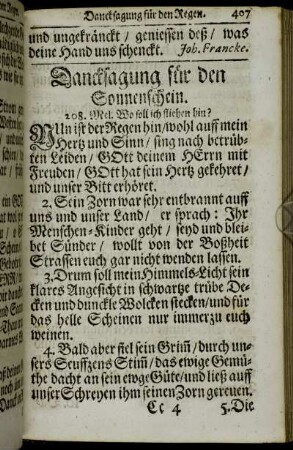 Dancksagung für den Regen. 407
und ungekränckt / geniessen deß / was
deine Hand uns schenckt. Joh. Francke.
Dancksagung für den
Sonnenschein.
208. Mel. Wo soll ich fliehen hin?
NUn ist der Regen hin / wohl auff mein
Hertz und Sinn / sing nach betrüb-
ten Leiden / GOtt deinem HErrn mit
Freuden / GOtt hat sein Hertz gekehret /
und unser Bitt erhöret.
2. Sein Zorn war sehr entbrannt auff
uns und unser Land / er sprach: Ihr
Menschen-Kinder geht / seyd und blei-
bet Sünder / wollt von der Boßheit
Strassen euch gar nicht wenden lassen.
3. Drum soll mein Himmels-Licht sein
klares Angesicht in schwartze trübe De-
cken und dunckle Wolcken stecken / und für
das helle Scheinen nur immerzu euch
weinen.
4. Bald aber fiel sein Grim̃ / durch un-
sers Seuffzens Stim̃ / das ewige Gemü-
the dacht an sein ewge Güte / und ließ auff
unser Schreyen ihm seinen Zorn gereuen.
Cc 4 5. Die